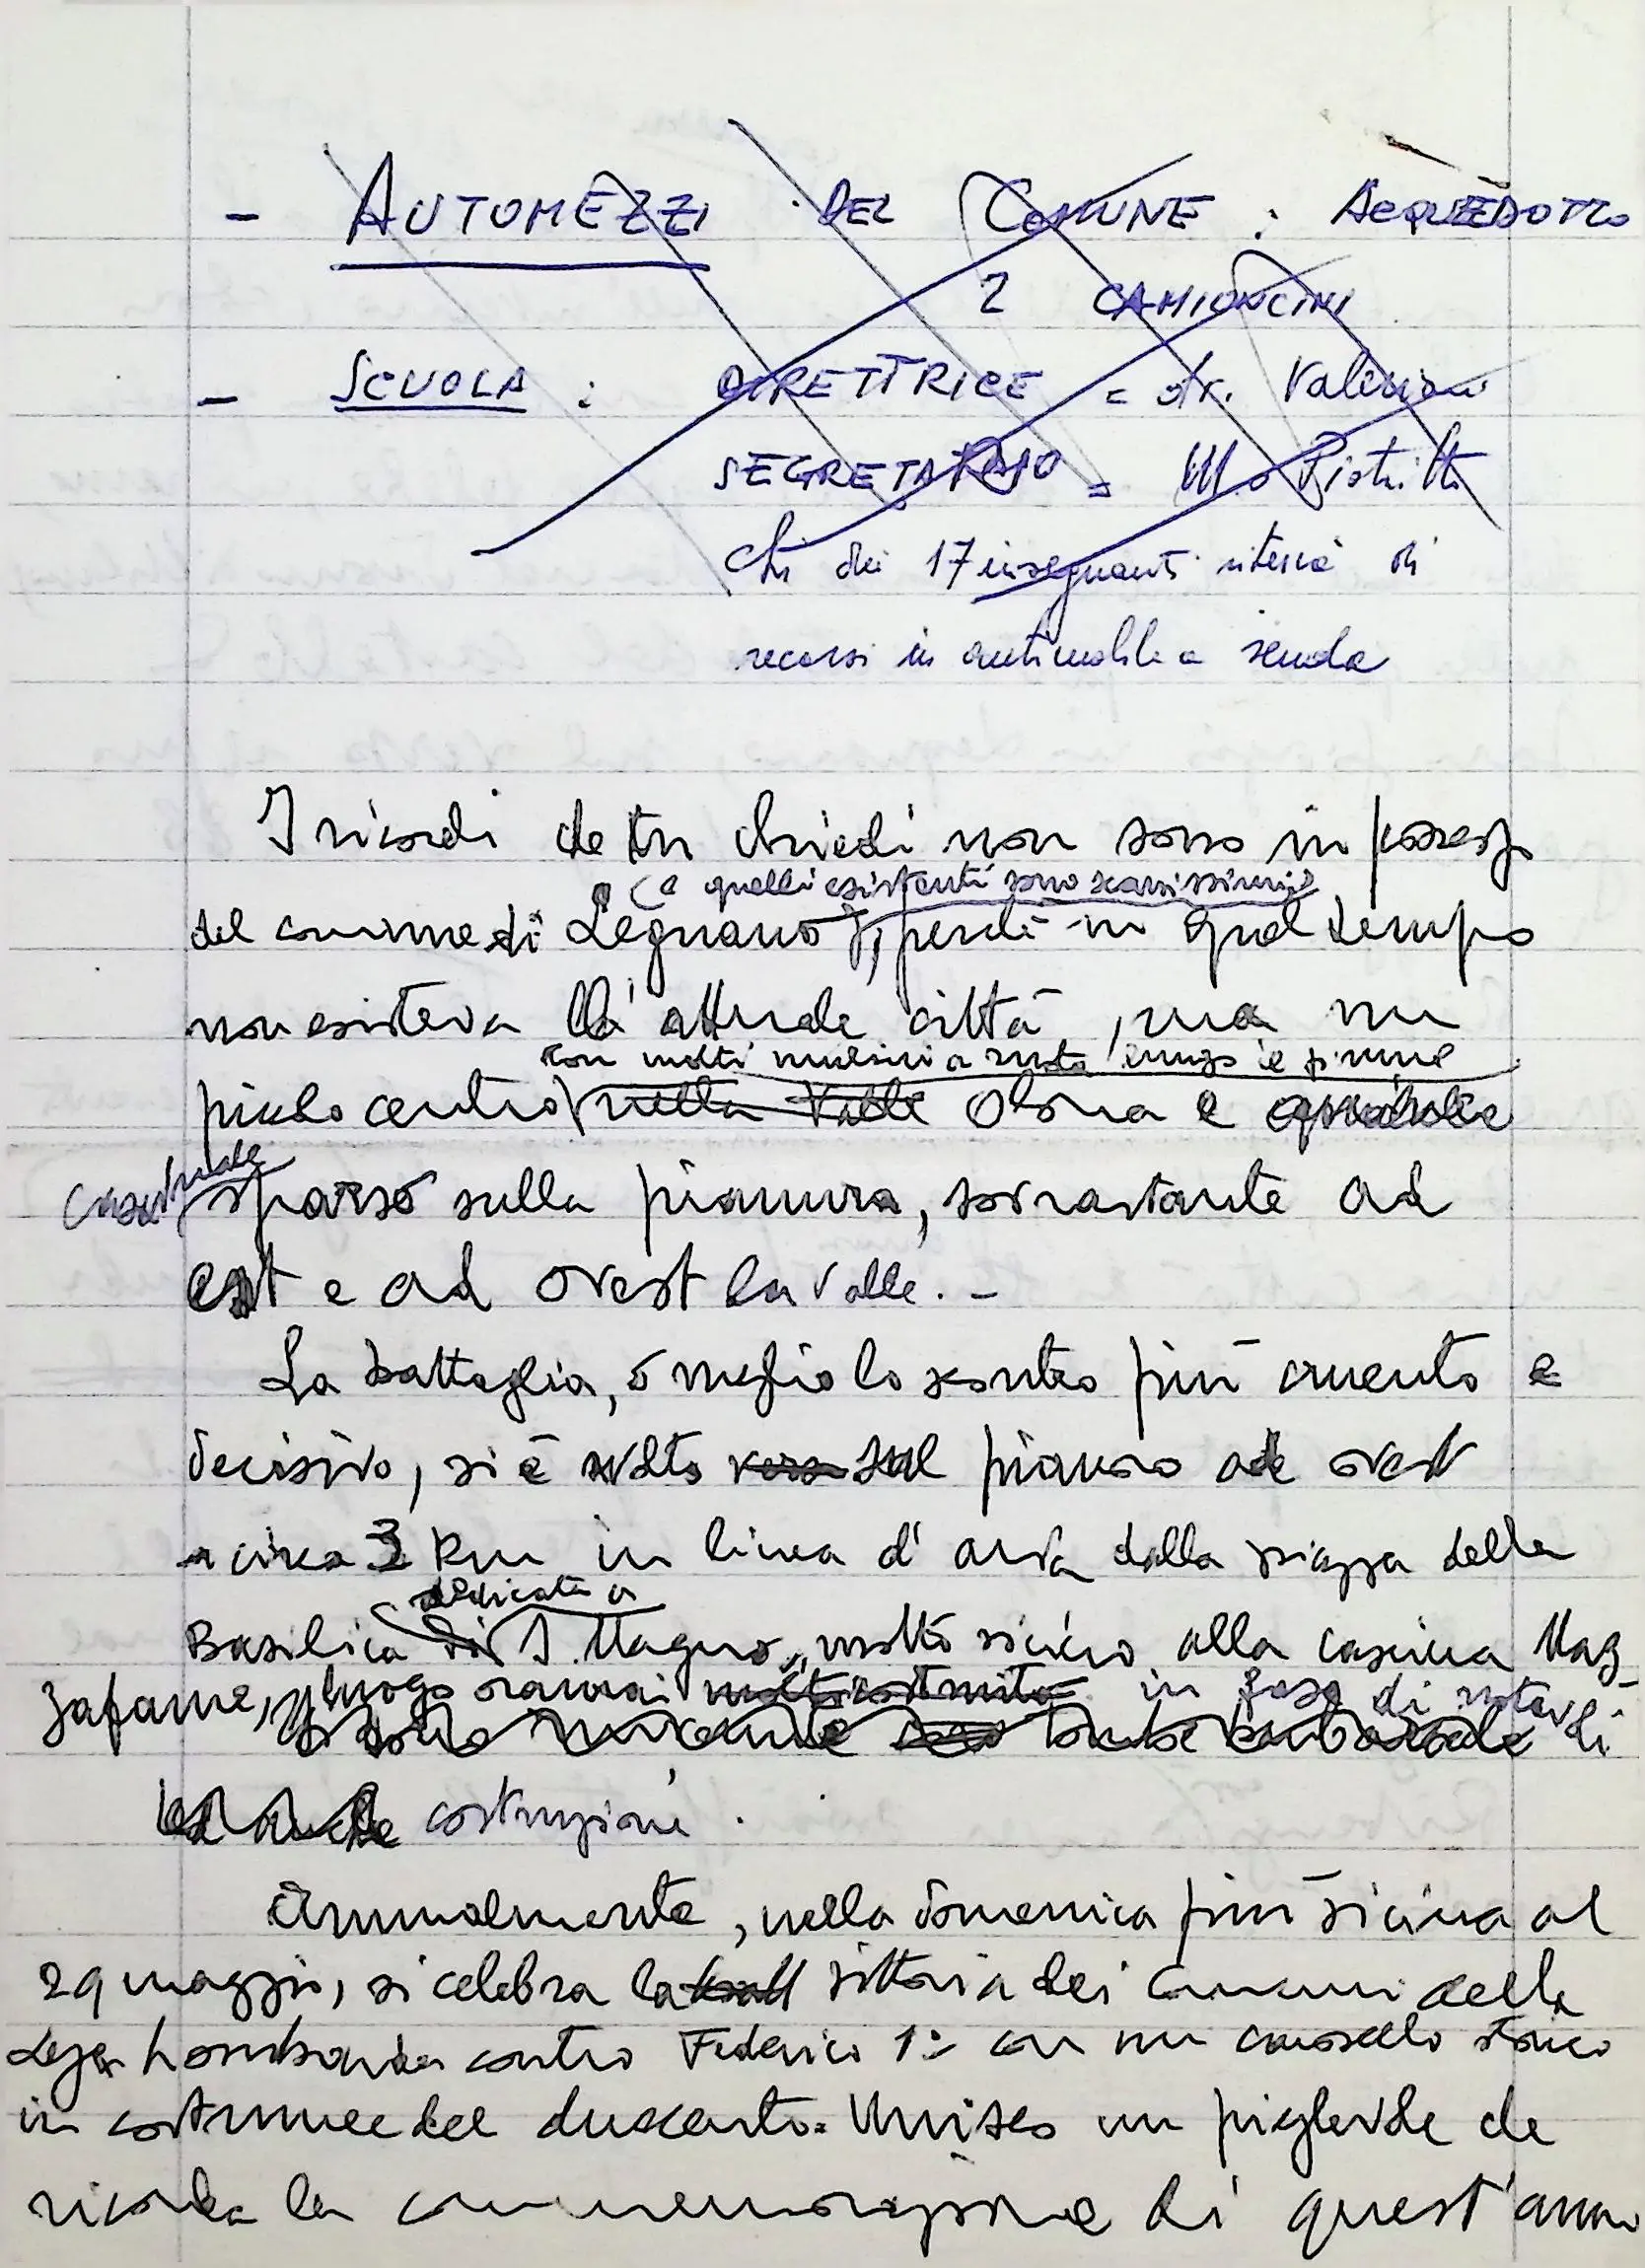 - AUTOMEZZI DEL COMUNE : ACQUEDOTTO
2 CAMIONCINI
- SCUOLA : DIRETTRICE = dr. Valeriani
SEGRETARIO = M.o Pistritto
Chi dei 17 insegnanti riterrà di
recarsi in automobile a scuola
I ricordi che tu chiedi non sono in possesso
(e quelli esistenti sono scarsissimi)
del comune di Legnano, perchè in quel tempo
non esisteva l'attuale città, ma un
con molti mulini a ruota lungo il fiume
piccolo centro nella Valle Olona e qualche
casa
sparso sulla pianura, sovrastante ad
est e ad ovest la valle. -
La battaglia, o meglio lo scontro più cruento e
decisivo, si è svolto verso sul pianoro ad ovest
a circa 3 Km in linea d'aria dalla piazza della
dedicata a
Basilica di S. Magno, molto vicino alla cascina Maz-
zafame, luogo oramai molto costruito in fase di notevoli
costruzioni.
Annualmente, nella domenica più vicina al
29 maggio, si celebra la vittoria dei Comuni della
Lega Lombarda contro Federico 1° con un carosello storico
in costume del duecento. Unisco un pieghevole che
ricorda la commemorazione di quest'anno